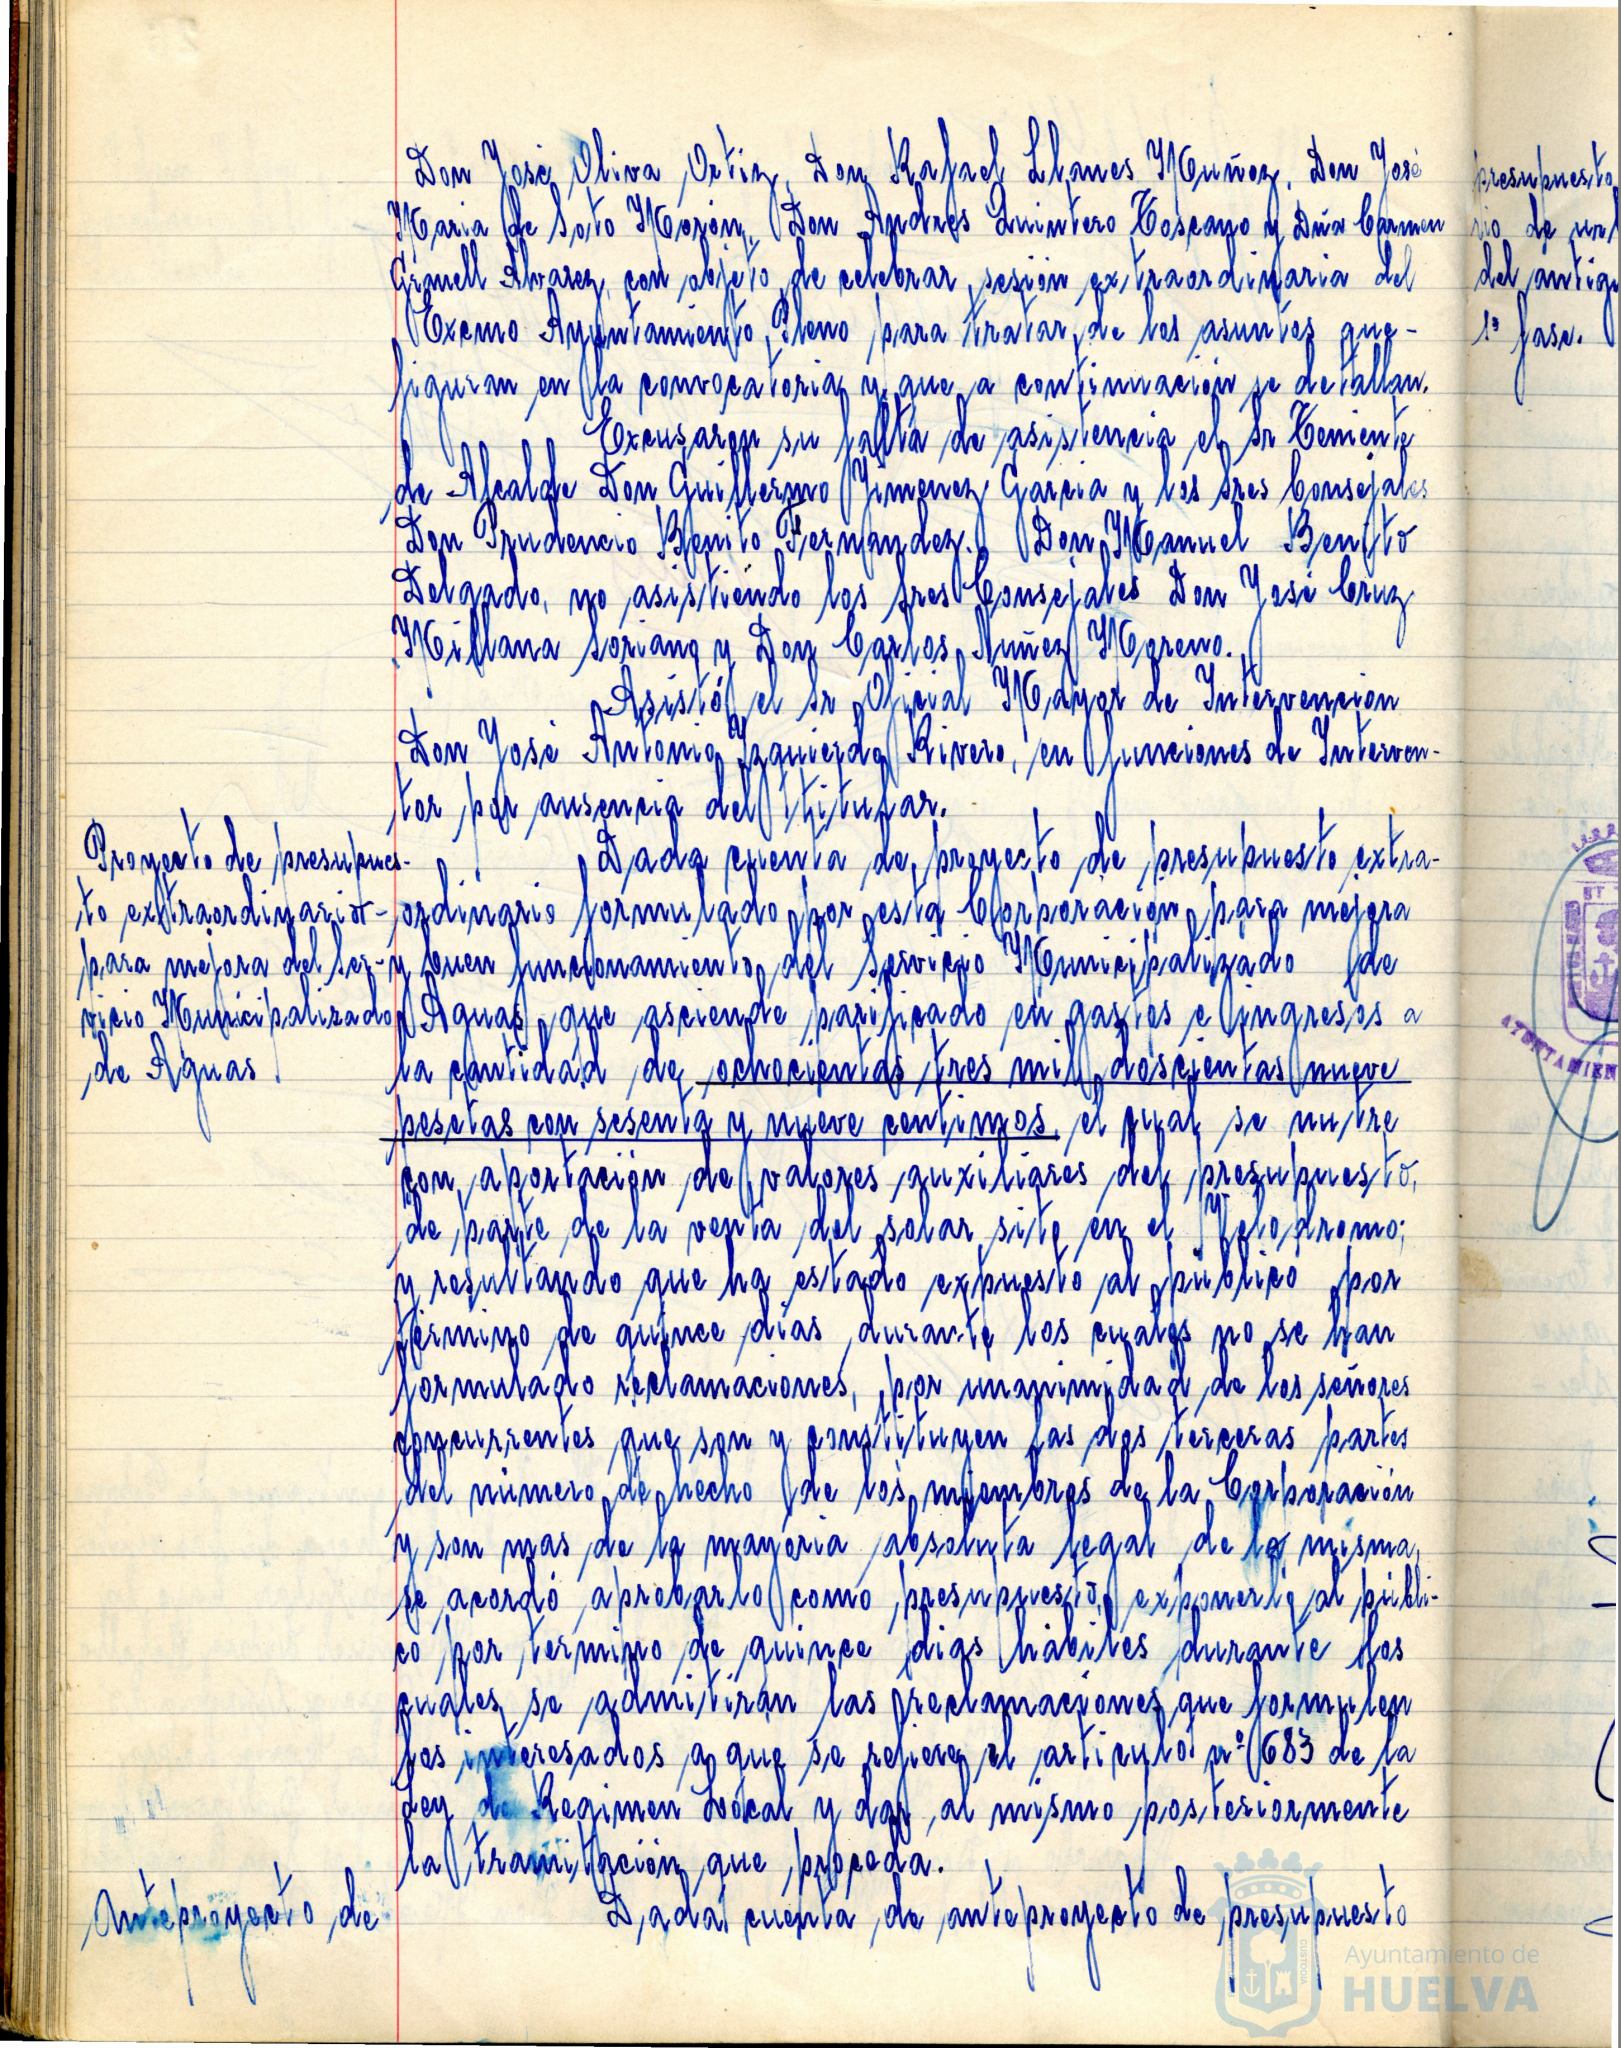 Don José Oliva Ortiz, Don Rafael Llanes Muñoz, Don José
Maria de Soto Morón, Don Andres Quintero Toscano y Dña Carmen
Granell Alvarez, con objeto de celebrar sesión extraordinaria del
Excmo Ayuntamiento Pleno para tratar de los asuntos que-
figuran en la convocatoria y que a continuación se detallan.
Excusaron su falta de asistencia el Sr Teniente
de Alcalde Don Guillermo Jimenez Garcia y los Sres Consejales
Don Prudencio Benito Fernandez. Don Manuel Benito
Delgado, no asistiendo los Sres Consejales Don José Cruz
Millana Soriano y Don Carlos Nuñez Moreno.
Asistó el Sr Oficial Mayor de Intervención
Don José Antonio Izquierdo Rivero, en funciones de Interven-
tor por ausencia del titular.
Proyecto de presupues-
to extraordinario-
para mejora del Ser-
vicio Municipalizado
de Aguas
Dada cuenta de proyecto de presupuesto extra-
ordinario formulado por esta Corporación para mejora
y buen funcionamiento del Servicio Municipalizado de
Aguas que asciende parificado en gastos e ingresos a
la cantidad de ochocientas tres mil doscientas nueve
pesetas con sesenta y nueve centimos, el cual se nutre
con aportación de valores auxiliares del presupuesto,
de parte de la venta del solar sito en el Velodromo;
y resultando que ha estado expuesto al público por
término de quince dias durante los cuales no se han
formulado reclamaciones, por unanimidad de los señores
concurrentes que son y constituyen las dos terceras partes
del número de hecho de los miembros de la Corporación
y son mas de la mayoria absoluta legal de la misma,
se acordó aprobarlo como presupuesto, exponerlo al públi-
co por termino de quince dias hábiles durante los
cuales se admitirán las reclamaciones que formulen
los interesados a que se refiere el articulo nº 683 de la
Ley de Regimen Local y dar al mismo posteriormente
la tramitación que proceda.
Anteproyecto de
Dada cuenta de anteproyecto de presupuesto
presupuesto
rio de
del antigu
1ª fase.
AYUNTAMIEN
Ayuntamiento de
HUELVA